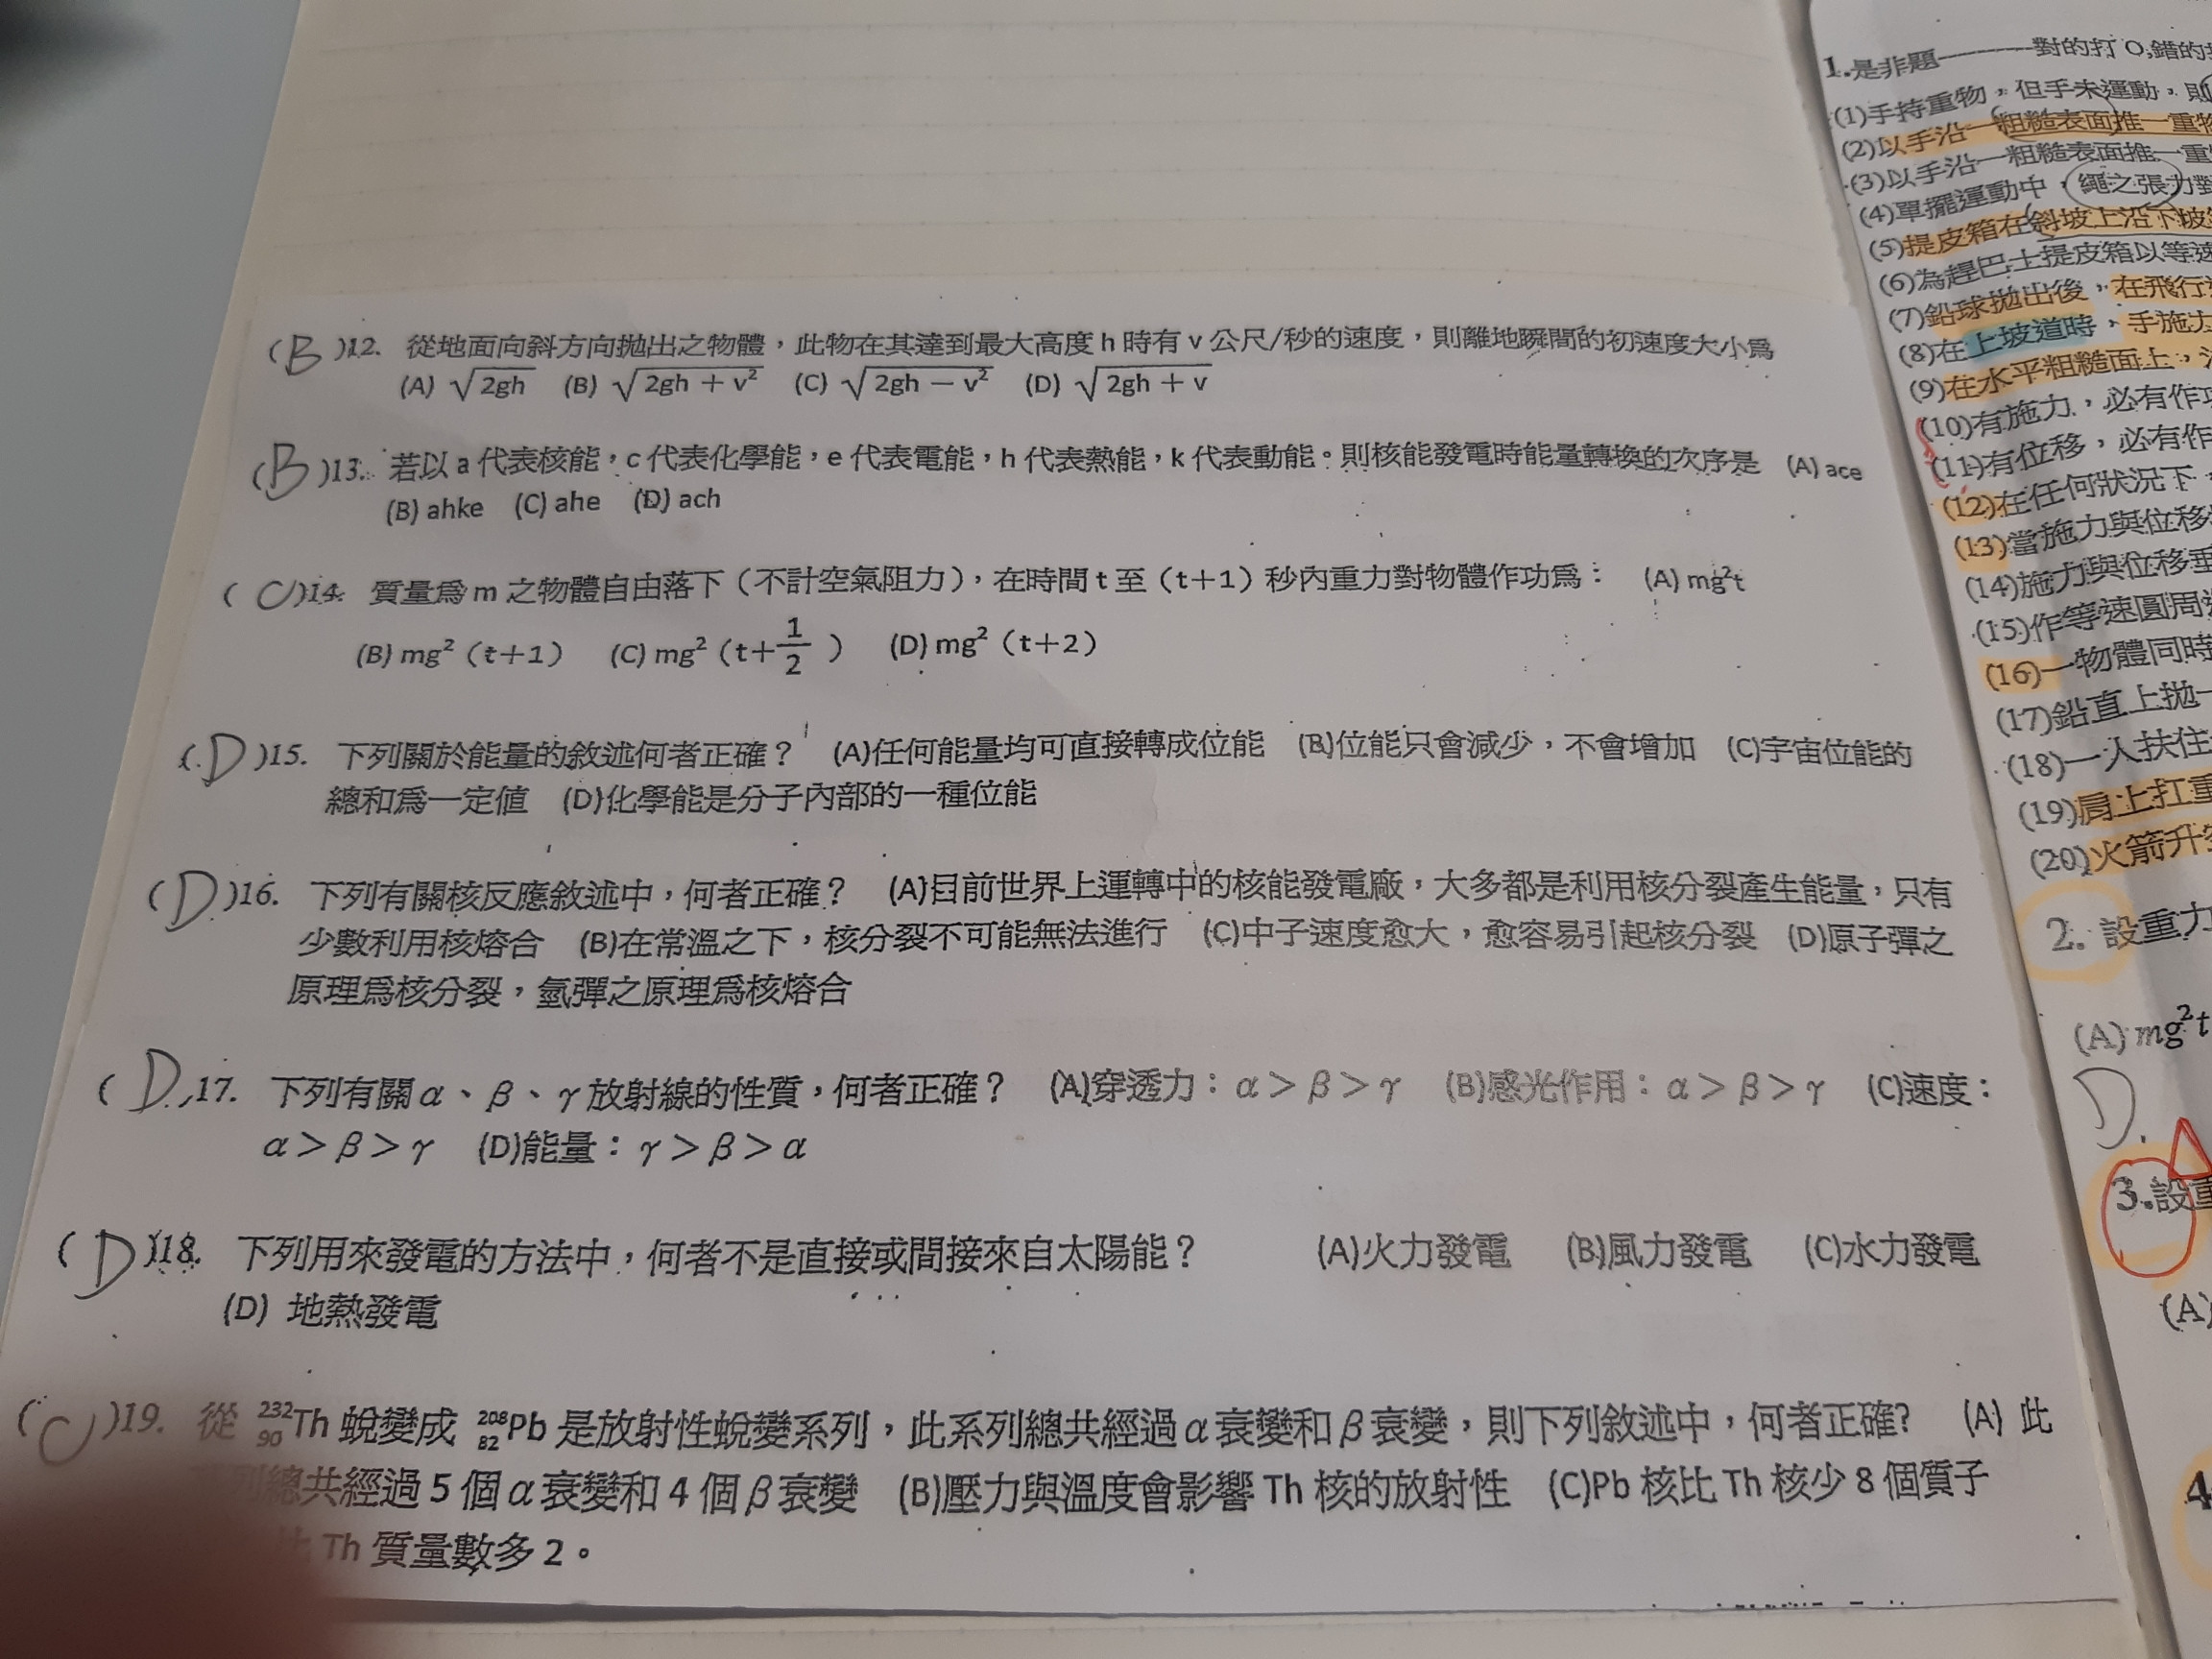 (B)12. 從地面向斜方向拋出之物體，此物在其達到最大高度 h 時有 v 公尺/秒的速度，則離地瞬間的初速度大小為
(A) √2gh (B) √2gh + v² (C) √2gh − v² (D) √2gh + v
(B)13. 若以 a 代表核能，c 代表化學能，e 代表電能，h 代表熱能，k 代表動能。則核能發電時能量轉換的次序是 (A) ace
(B) ahke (C) ahe (D) ach
(C)14. 質量為 m 之物體自由落下（不計空氣阻力），在時間 t 至（t＋1）秒內重力對物體作功為： (A) mg²t
(B) mg²（t＋1） (C) mg²（t＋1/2） (D) mg²（t＋2）
(D)15. 下列關於能量的敘述何者正確？ (A)任何能量均可直接轉成位能 (B)位能只會減少，不會增加 (C)宇宙位能的
總和為一定值 (D)化學能是分子內部的一種位能
(D)16. 下列有關核反應敘述中，何者正確？ (A)目前世界上運轉中的核能發電廠，大多都是利用核分裂產生能量，只有
少數利用核熔合 (B)在常溫之下，核分裂不可能無法進行 (C)中子速度愈大，愈容易引起核分裂 (D)原子彈之
原理為核分裂，氫彈之原理為核熔合
(D)17. 下列有關 α、β、γ 放射線的性質，何者正確？ (A)穿透力：α＞β＞γ (B)感光作用：α＞β＞γ (C)速度：
α＞β＞γ (D)能量：γ＞β＞α
(D)18. 下列用來發電的方法中，何者不是直接或間接來自太陽能？ (A)火力發電 (B)風力發電 (C)水力發電
(D) 地熱發電
(C)19. 從 ²³²₉₀Th 蛻變成 ²⁰⁸₈₂Pb 是放射性蛻變系列，此系列總共經過 α 衰變和 β 衰變，則下列敘述中，何者正確? (A) 此
列總共經過 5 個 α 衰變和 4 個 β 衰變 (B)壓力與溫度會影響 Th 核的放射性 (C)Pb 核比 Th 核少 8 個質子
比 Th 質量數多 2。
1.是非題————對的打 O,錯的
(1)手持重物，但手未運動，則
(2)以手沿一粗糙表面推一重物
(3)以手沿一粗糙表面推一重
(4)單擺運動中，繩之張力對
(5)提皮箱在斜坡上沿下坡
(6)為趕巴士提皮箱以等速
(7)鉛球拋出後，在飛行
(8)在上坡道時，手施力
(9)在水平粗糙面上，
(10)有施力，必有作功
(11)有位移，必有作
(12)在任何狀況下，
(13)當施力與位移
(14)施力與位移垂
(15)作等速圓周
(16)一物體同時
(17)鉛直上拋一
(18)一人扶住
(19)肩上扛重
(20)火箭升空
2. 設重力
(A) mg²t
D.
3.設重
(A)
4